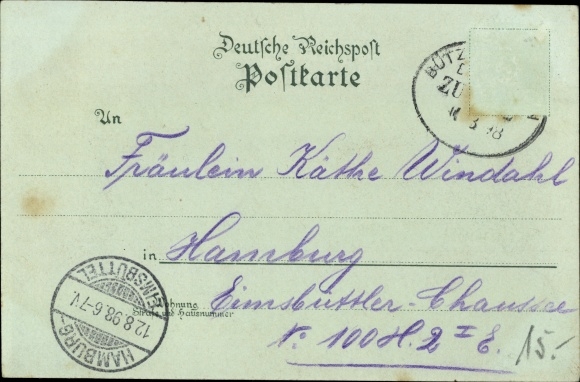 Deutsche Reichspost
Postkarte
BÜTZ
ZU
8 98
An
Fräulein Käthe Windahl
in Hamburg
Wohnung
Straße und Hausnummer
Eimsbüttler-Chaussee
No 100 H. 2 I E.
15.-
HAMBURG-EIMSBÜTTEL
12.8.98.6-7V.